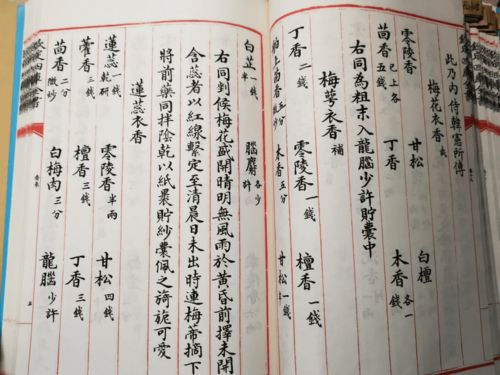 此乃內侍韓憲所傳
梅花衣香 武
零陵香 甘松 白檀
茴香 已上各五錢 丁香 木香 各一錢
右同為粗末入龍腦少許貯囊中
梅萼衣香 補
丁香 二錢 零陵香 一錢 檀香 一錢
舶上茴香 木香 五分 甘松 一錢
白芷 一錢半 腦麝 各少許
右同到候梅花盛開晴明無風雨於黄昏前擇未開
含蕊者以紅線繫定至清晨日未出時連梅蒂摘下
將前藥同拌陰乾以紙裹貯紗囊佩之旖旎可愛
蓮蕊衣香
蓮蕊 一錢乾研 零陵香 半兩 甘松 四錢
藿香 三錢 檀香 三錢 丁香 三錢
茴香 微炒 白梅肉 三分 龍腦 少許
欽定四庫全書